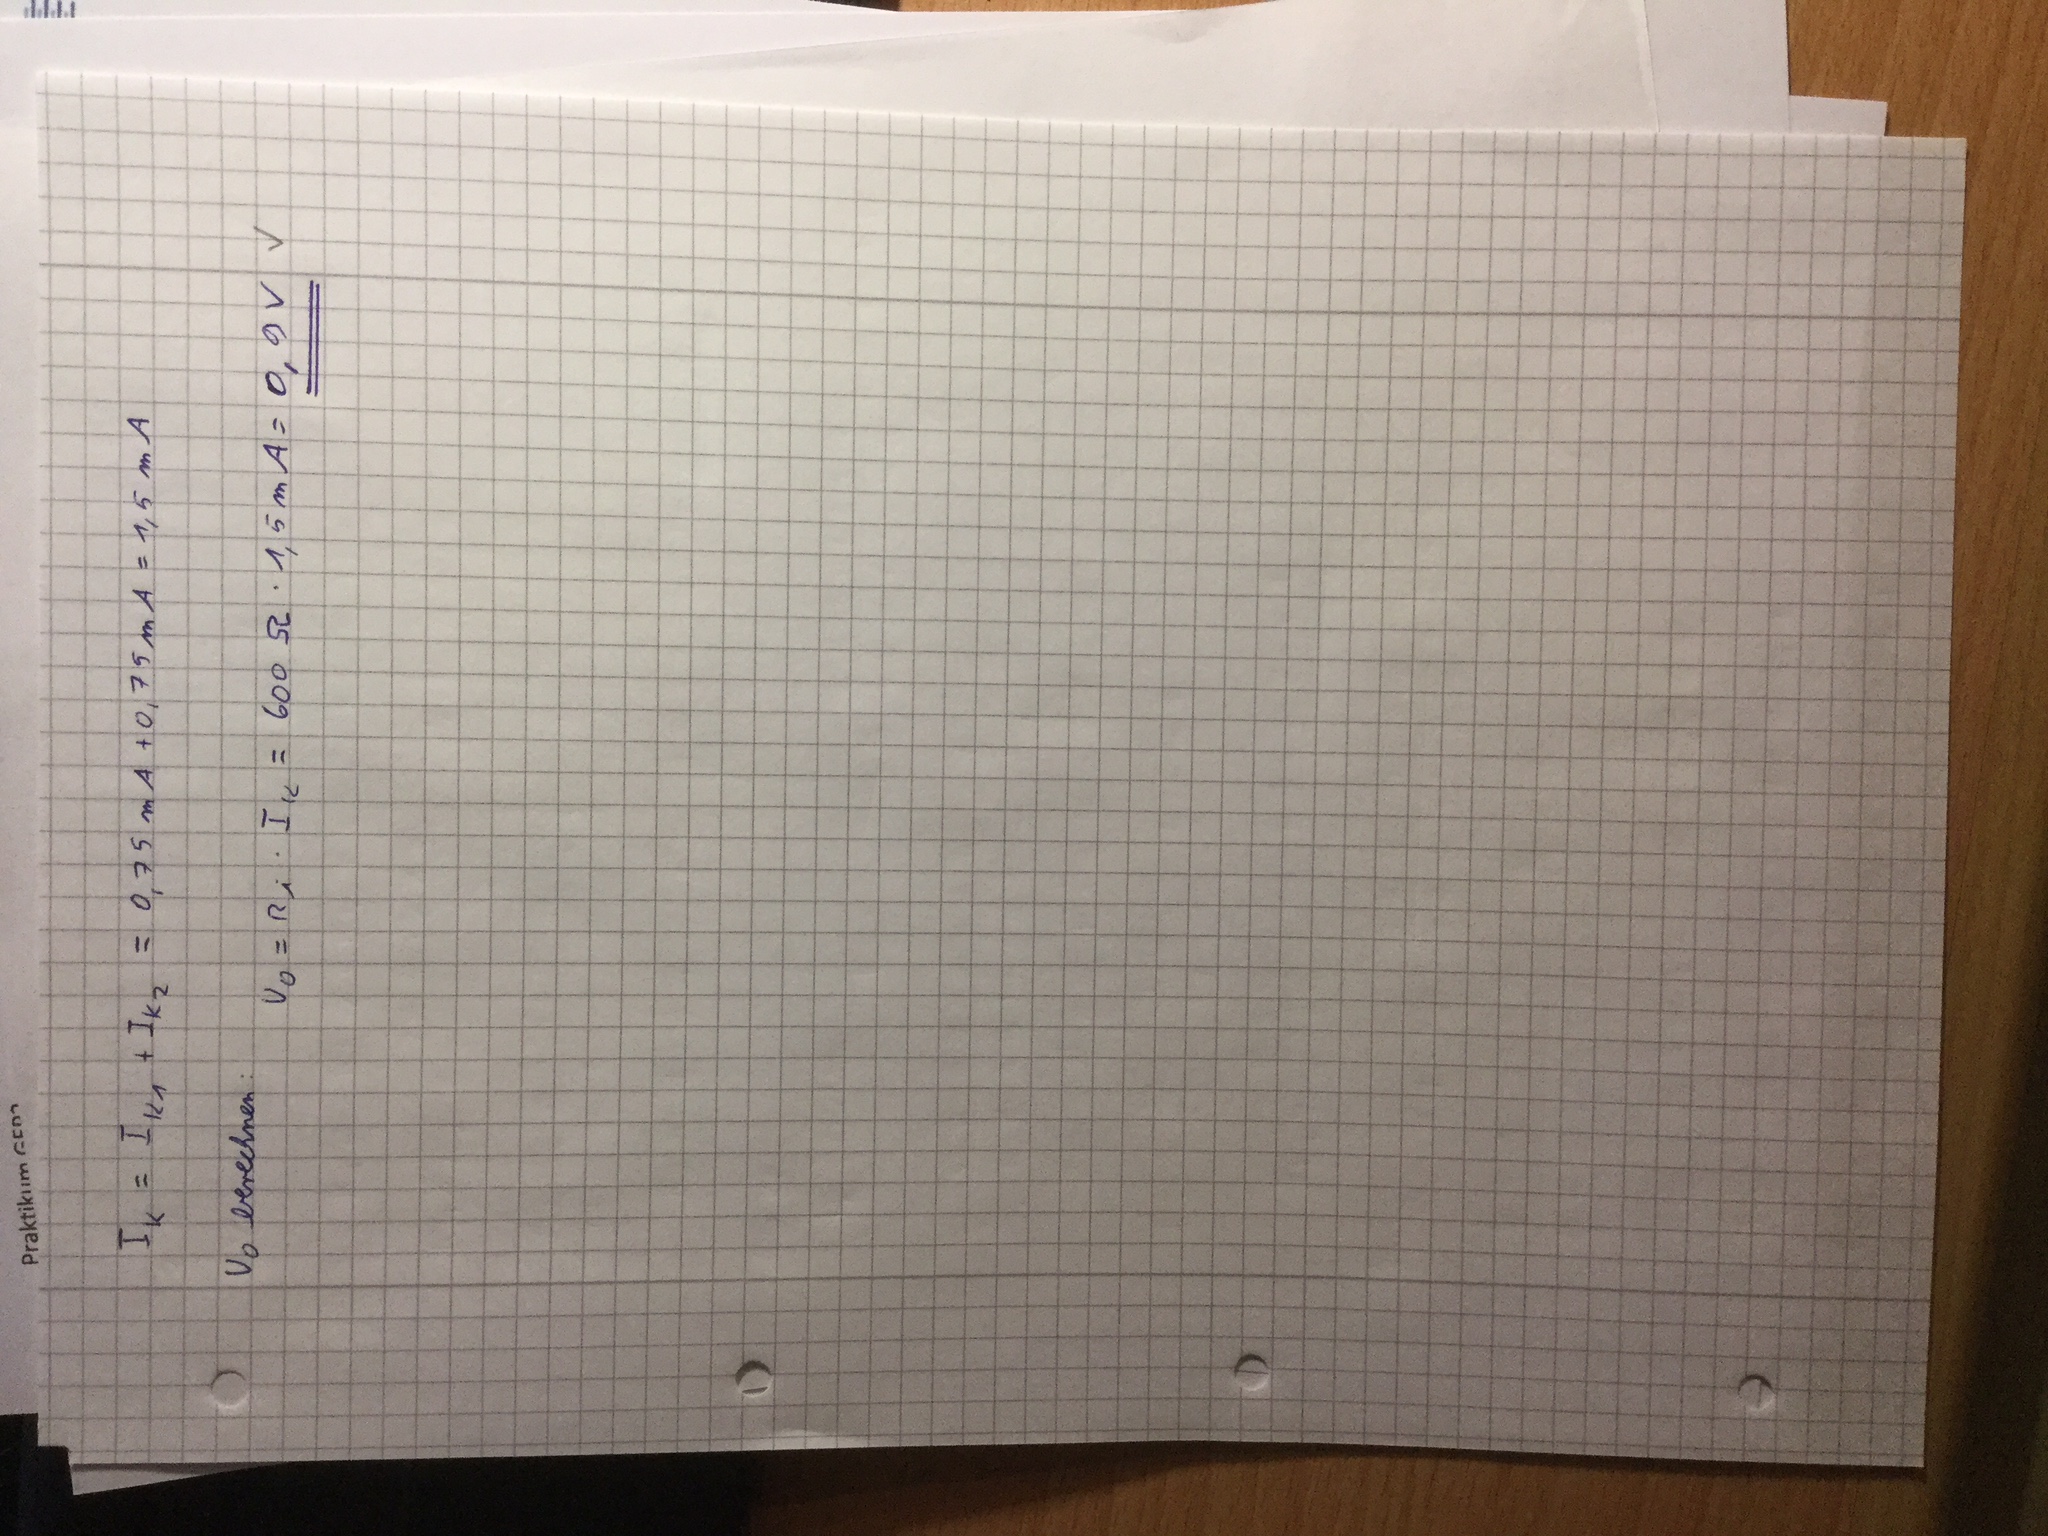 Praktikum
I_K = I_K1 + I_K2 = 0,75 mA + 0,75 mA = 1,5 mA
U_0 berechnen:
U_0 = R_i · I_K = 600 Ω · 1,5 mA = 0,9 V ✓